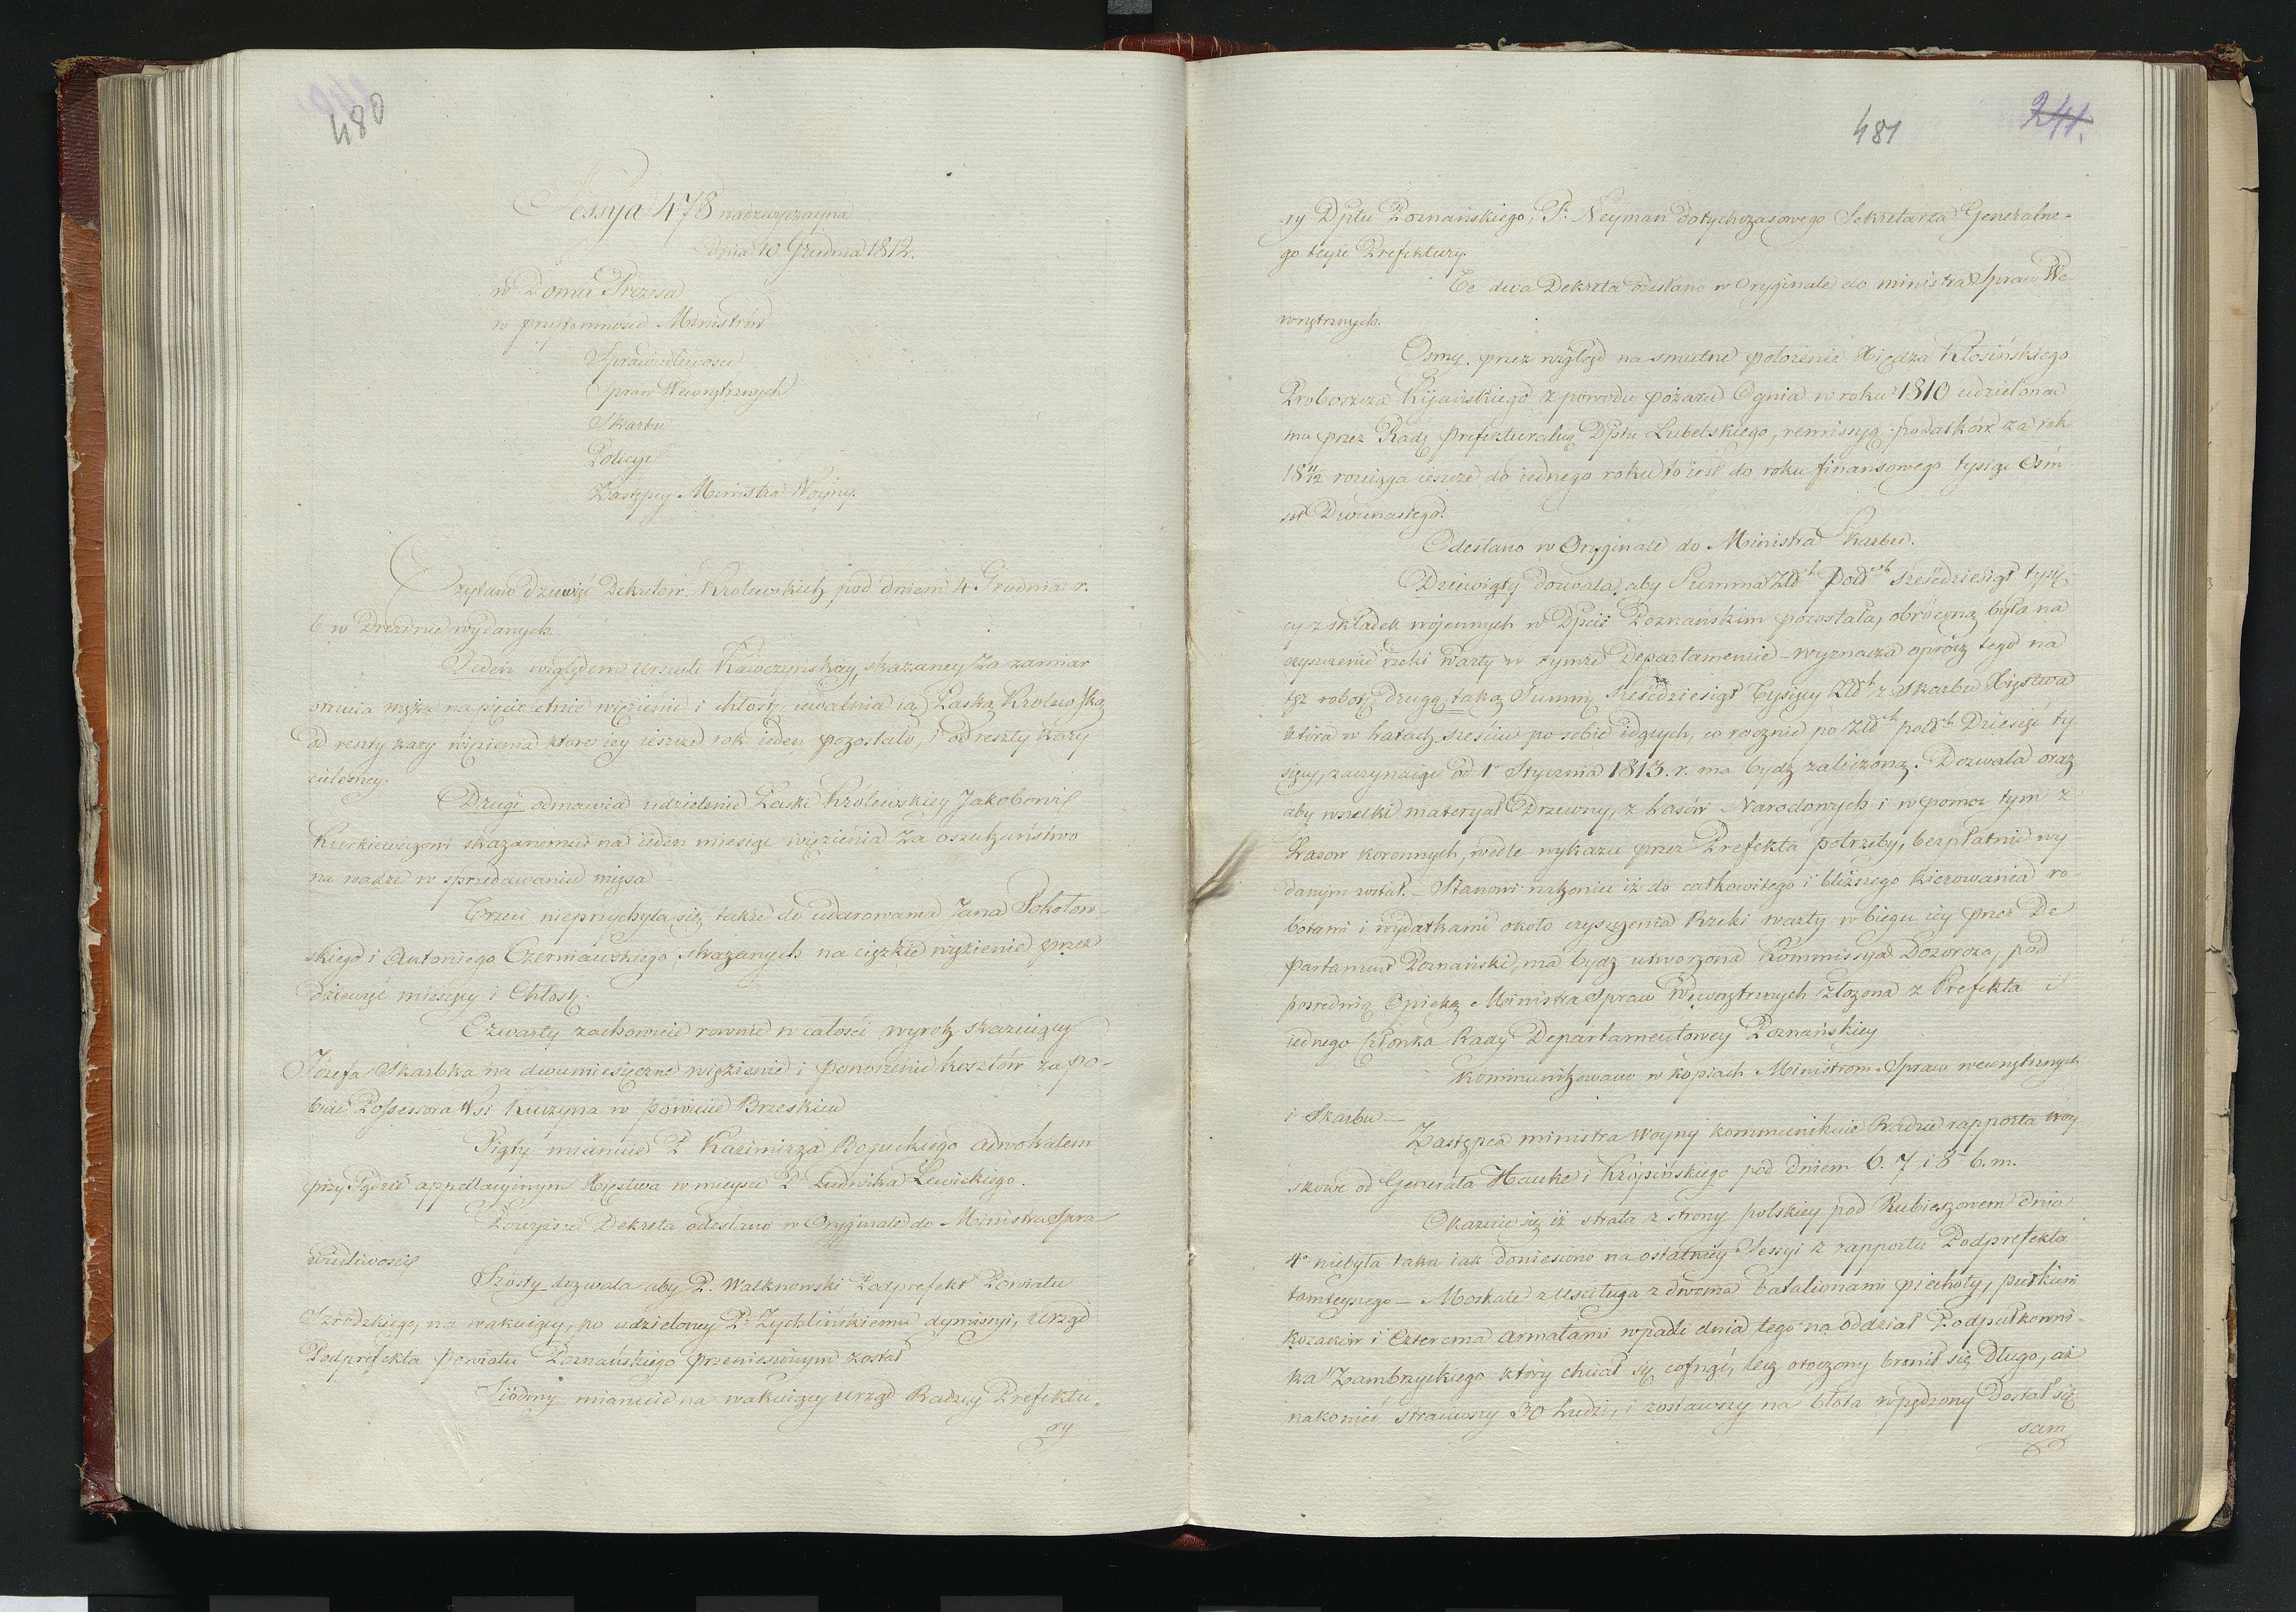 480
Sessya 478 nadzwyczayna
Dnia 10 Grudnia 1812.
w Domu Prezesa
w przytomności Ministrów
Sprawiedliwosci
Spraw Wewnętrznych
Skarbu
Policyi
Zastępcy Ministra Woyny.
Czytano dziewięć Dekretow Krolewskich pod dniem 4 Grudnia r.
b. w Dreznie wydanych.
Jeden względem Urszuli Kawczynskiey, skazaney za zamiar
otrucia męża na pięcio letnie więzienie i chłostę uwalnia ią Łaską Krolewską
od reszty kary więzienia ktore iey ieszcze rok ieden pozostało, i od reszty kary
cielesney.
Drugi odmawia udzielenie Łaski Krolewskiey Jakobowi
Kurkiewiczowi skazanemu na ieden miesiąc więzienia za oszukaństwo
na wadze w sprzedawaniu mięsa
Trzeci nieprzychyla się także do udarowania Jana Sokołow-
skiego i Antoniego Czerniawskiego, skazanych na ciężkie więzienie przez
dziewięć miesięcy i Chłostę.
Czwarty zachowuie rownie w całości wyrok skazuiący
Jozefa Skarbka na dwumiesięczne więzienie i ponoszenie kosztów za po-
bicie Possessora Wsi Kuczyna w powiecie Brzeskim
Piąty mianuie P. Kazimirza Boguckiego Adwokatem
przy Sądzie appellacyinym Xięstwa w mieysce P. Ludwika Lewickiego.
Powyższe Dekreta odesłano w Oryginale do Ministra Spra-
wiedliwości
Szósty dozwala aby P. Walknowski Podprefekt Powiatu
Szrodzkiego, na wakuiący, po udzieloney P. Zychlińskiemu dymissyi, Urząd
Podprefekta Powiatu Poznańskiego przeniesionym został
Siódmy mianuie na wakuiący Urząd Radzcy Prefektu-
ry
481
241.
ry Dptu Poznańskiego, P. Neyman dotychczasowego Sekretarza Generalne-
go teyże Prefektury.
Te dwa Dekreta odesłano w Oryginale do ministra Spraw We-
wnętrznych.
Osmy. przez wzgląd na smutne położenie Xiędza Kłosińskiego
Proboszcza Kijańskiego z powodu pożaru Ognia w roku 1810 udzielona
mu przez Radę Prefekturalną Dptu Lubelskiego, remissyą podatków za rok
18 11/12 rozciąga ieszcze do iednego roku to iest do roku finansowego tysiąc Osm
set Dwunastego.
Odesłano w Oryginale do Ministra Skarbu.
Dziewiąty dozwala, aby Summa Złch Polch sześćdziesiąt tysię-
cy z składek wojennych w Dpcie Poznańskim pozostała, obróconą była na
czyszczenie rzeki Warty w tymże Departamencie – wyznacza oprócz tego na
tęż robotę drugą taką Summę Sześćdziesiąt Tysięcy Złch z Skarbu Xięstwa
która w Latach sześciu po sobie idących, co rocznie po Złch polch Dziesięć ty-
sięcy, zaczynaiąc od 1o Stycznia 1813. r. ma bydź zaliczoną. Dozwala oraz
aby wszelki materyał Drzewny, z Lasów Narodowych i w pomoc tym z
Lasow koronnych, wedle wykazu przez Prefekta potrzeby, bezpłatnie wy-
danym został. – Stanowi nakoniec iż do całkowitego i bliższego kierowania ro-
botami i wydatkami około czyszczenia Rzeki warty w biegu iey przez De-
partament Poznański, ma bydź utworzona Kommissya Dozorcza, pod
posrednią Opieką Ministra Spraw Wewnętrznych złożona z Prefekta i
iednego Członka Rady Departamentowey Poznańskiey
Kommunikowano w kopiach Ministrom Spraw wewnętrznych
i Skarbu –
Zastępca ministra Woyny kommunikuie Radzie rapporta woy-
skowe od Generała Hauke i Kropińskiego pod dniem 6. 7 i 8 b. m.
Okazuie się iż strata z strony polskiey pod Rubieszowem dnia
4o niebyła taka iak doniesiono na ostatniey Sessyi z rapportu Podprefekta
tamteyszego – Moskale z Uściługa z dwoma batalionami piechoty, pułkiem
kozaków i Czterema armatami wpadli dnia tego na oddział Podpułkowni-
ka Zambrzyckiego który chciał się cofnąć, lecz otoczony bronił się Długo, aż
nakoniec straciwszy 30 Ludzi, i zostawszy na błota wpędzony Dostał się
sam